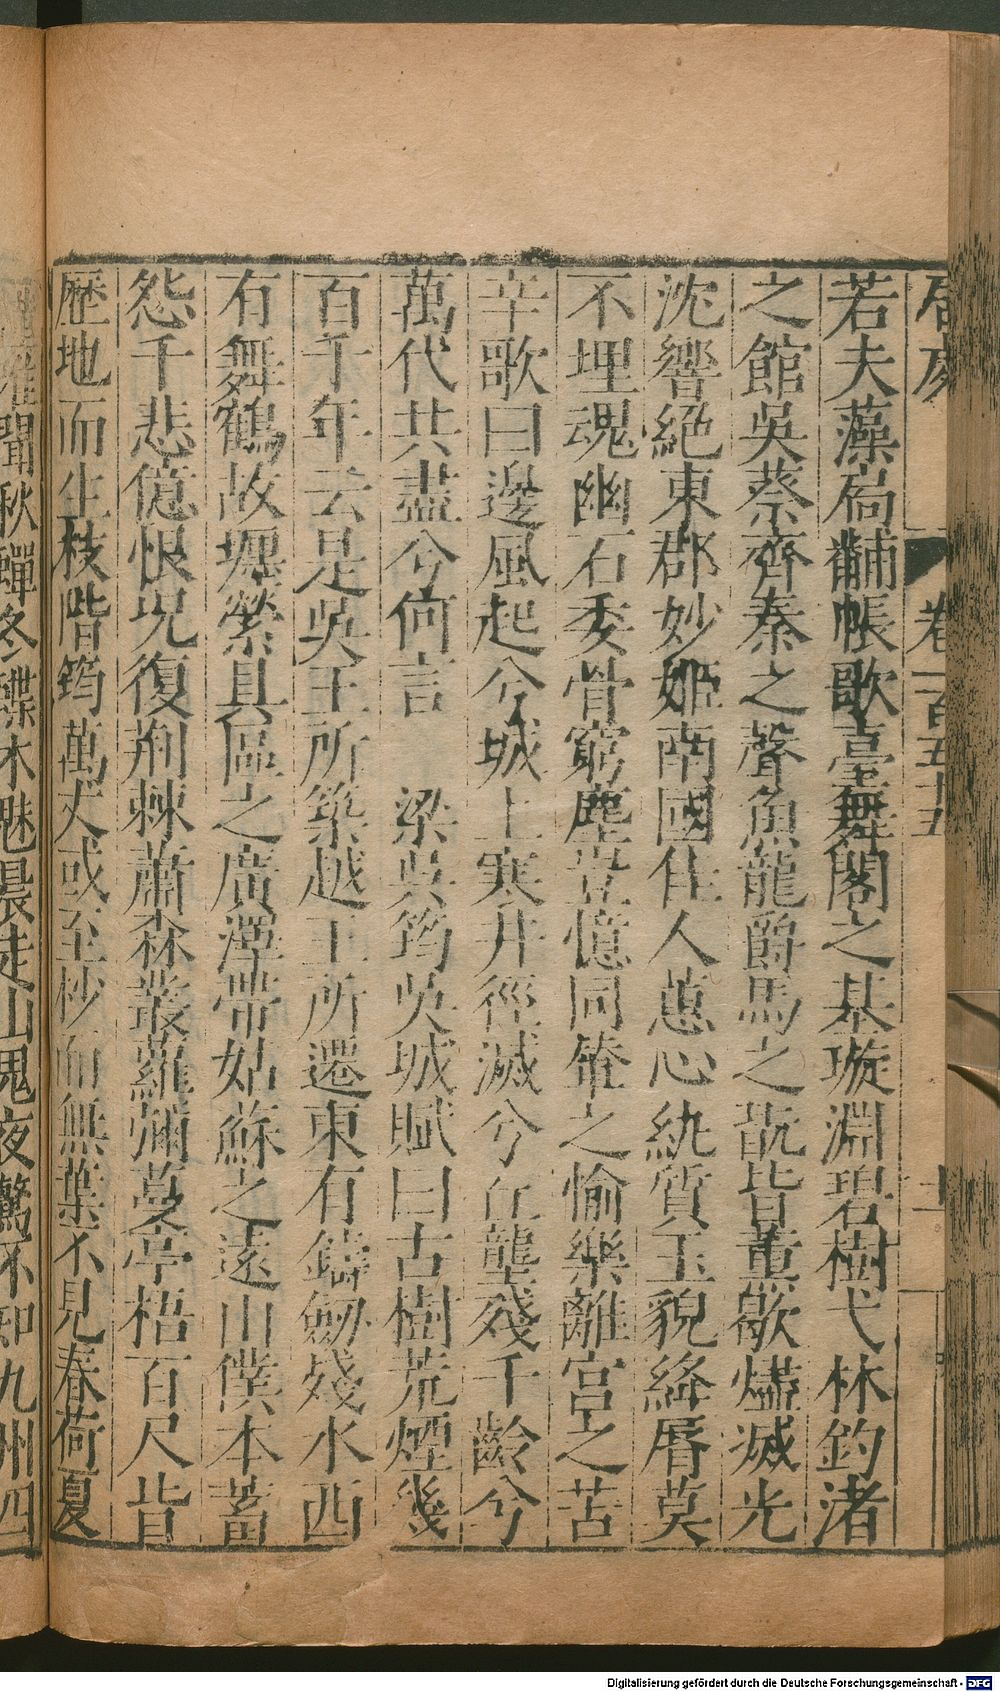 卷一百五十五
若夫藻扃黼帳歌臺舞閣之基璇淵碧樹弋林釣渚
之館吳蔡齊秦之聲魚龍爵馬之翫皆薰歇燼滅光
沈響絕東郡妙姬南國佳人蕙心紈質玉貌絳脣莫
不埋魂幽石委骨窮塵豈憶同輦之愉樂離宮之苦
辛歌曰邊風起兮城上寒井徑滅兮丘壟殘千齡兮
萬代共盡兮何言　梁吳筠吳城賦曰古樹荒煙幾
百千年云是吳王所築越王所遷東有鑄劒殘水西
有舞鶴故堽縈具區之廣澤帶姑蘇之遠山僕本蓄
怨千悲億恨况復荆棘蕭森叢蘿彌蔓亭梧百尺皆
歷地而生枝階筠萬丈或至杪而無葉不見春荷夏
唯聞秋蟬冬蝶木魅晨走山鬼夜驚不知九州四
Digitalisierung gefördert durch die Deutsche Forschungsgemeinschaft - DFG